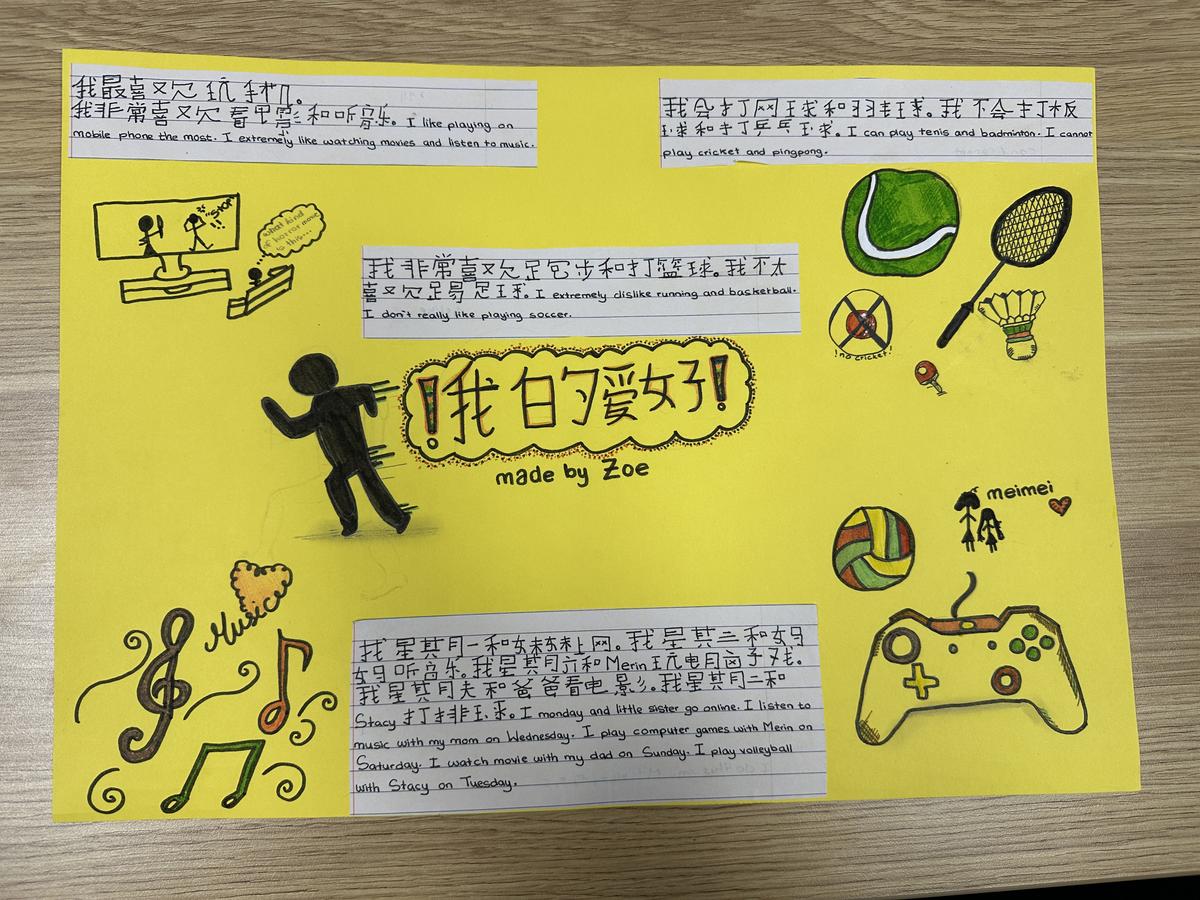 我最喜欢玩手机。
我非常喜欢看电影和听音乐。I like playing on
mobile phone the most. I extremely like watching movies and listen to music.
我会打网球和羽毛球。我不会打板
球和打乒乓球。I can play tenis and badminton. I cannot
play cricket and pingpong.
"STOP!!"
what kind
of horror movie
is this...
我非常喜欢足包步和打篮球。我不太
喜欢踢足球。I extremely dislike running and basketball.
I don't really like playing soccer.
!no cricket!
!我的爱好!
made by Zoe
meimei
Music
我星其月一和妹妹上网。我星其三和妈
妈听音乐。我星其月六和Merin玩电月卤子戏。
我星其月天和爸爸看电影。我星其月二和
Stacy 打排球。I monday and little sister go online. I listen to
music with my mom on Wednesday. I play computer games with Merin on
Saturday. I watch movie with my dad on Sunday. I play volleyball
with Stacy on Tuesday.